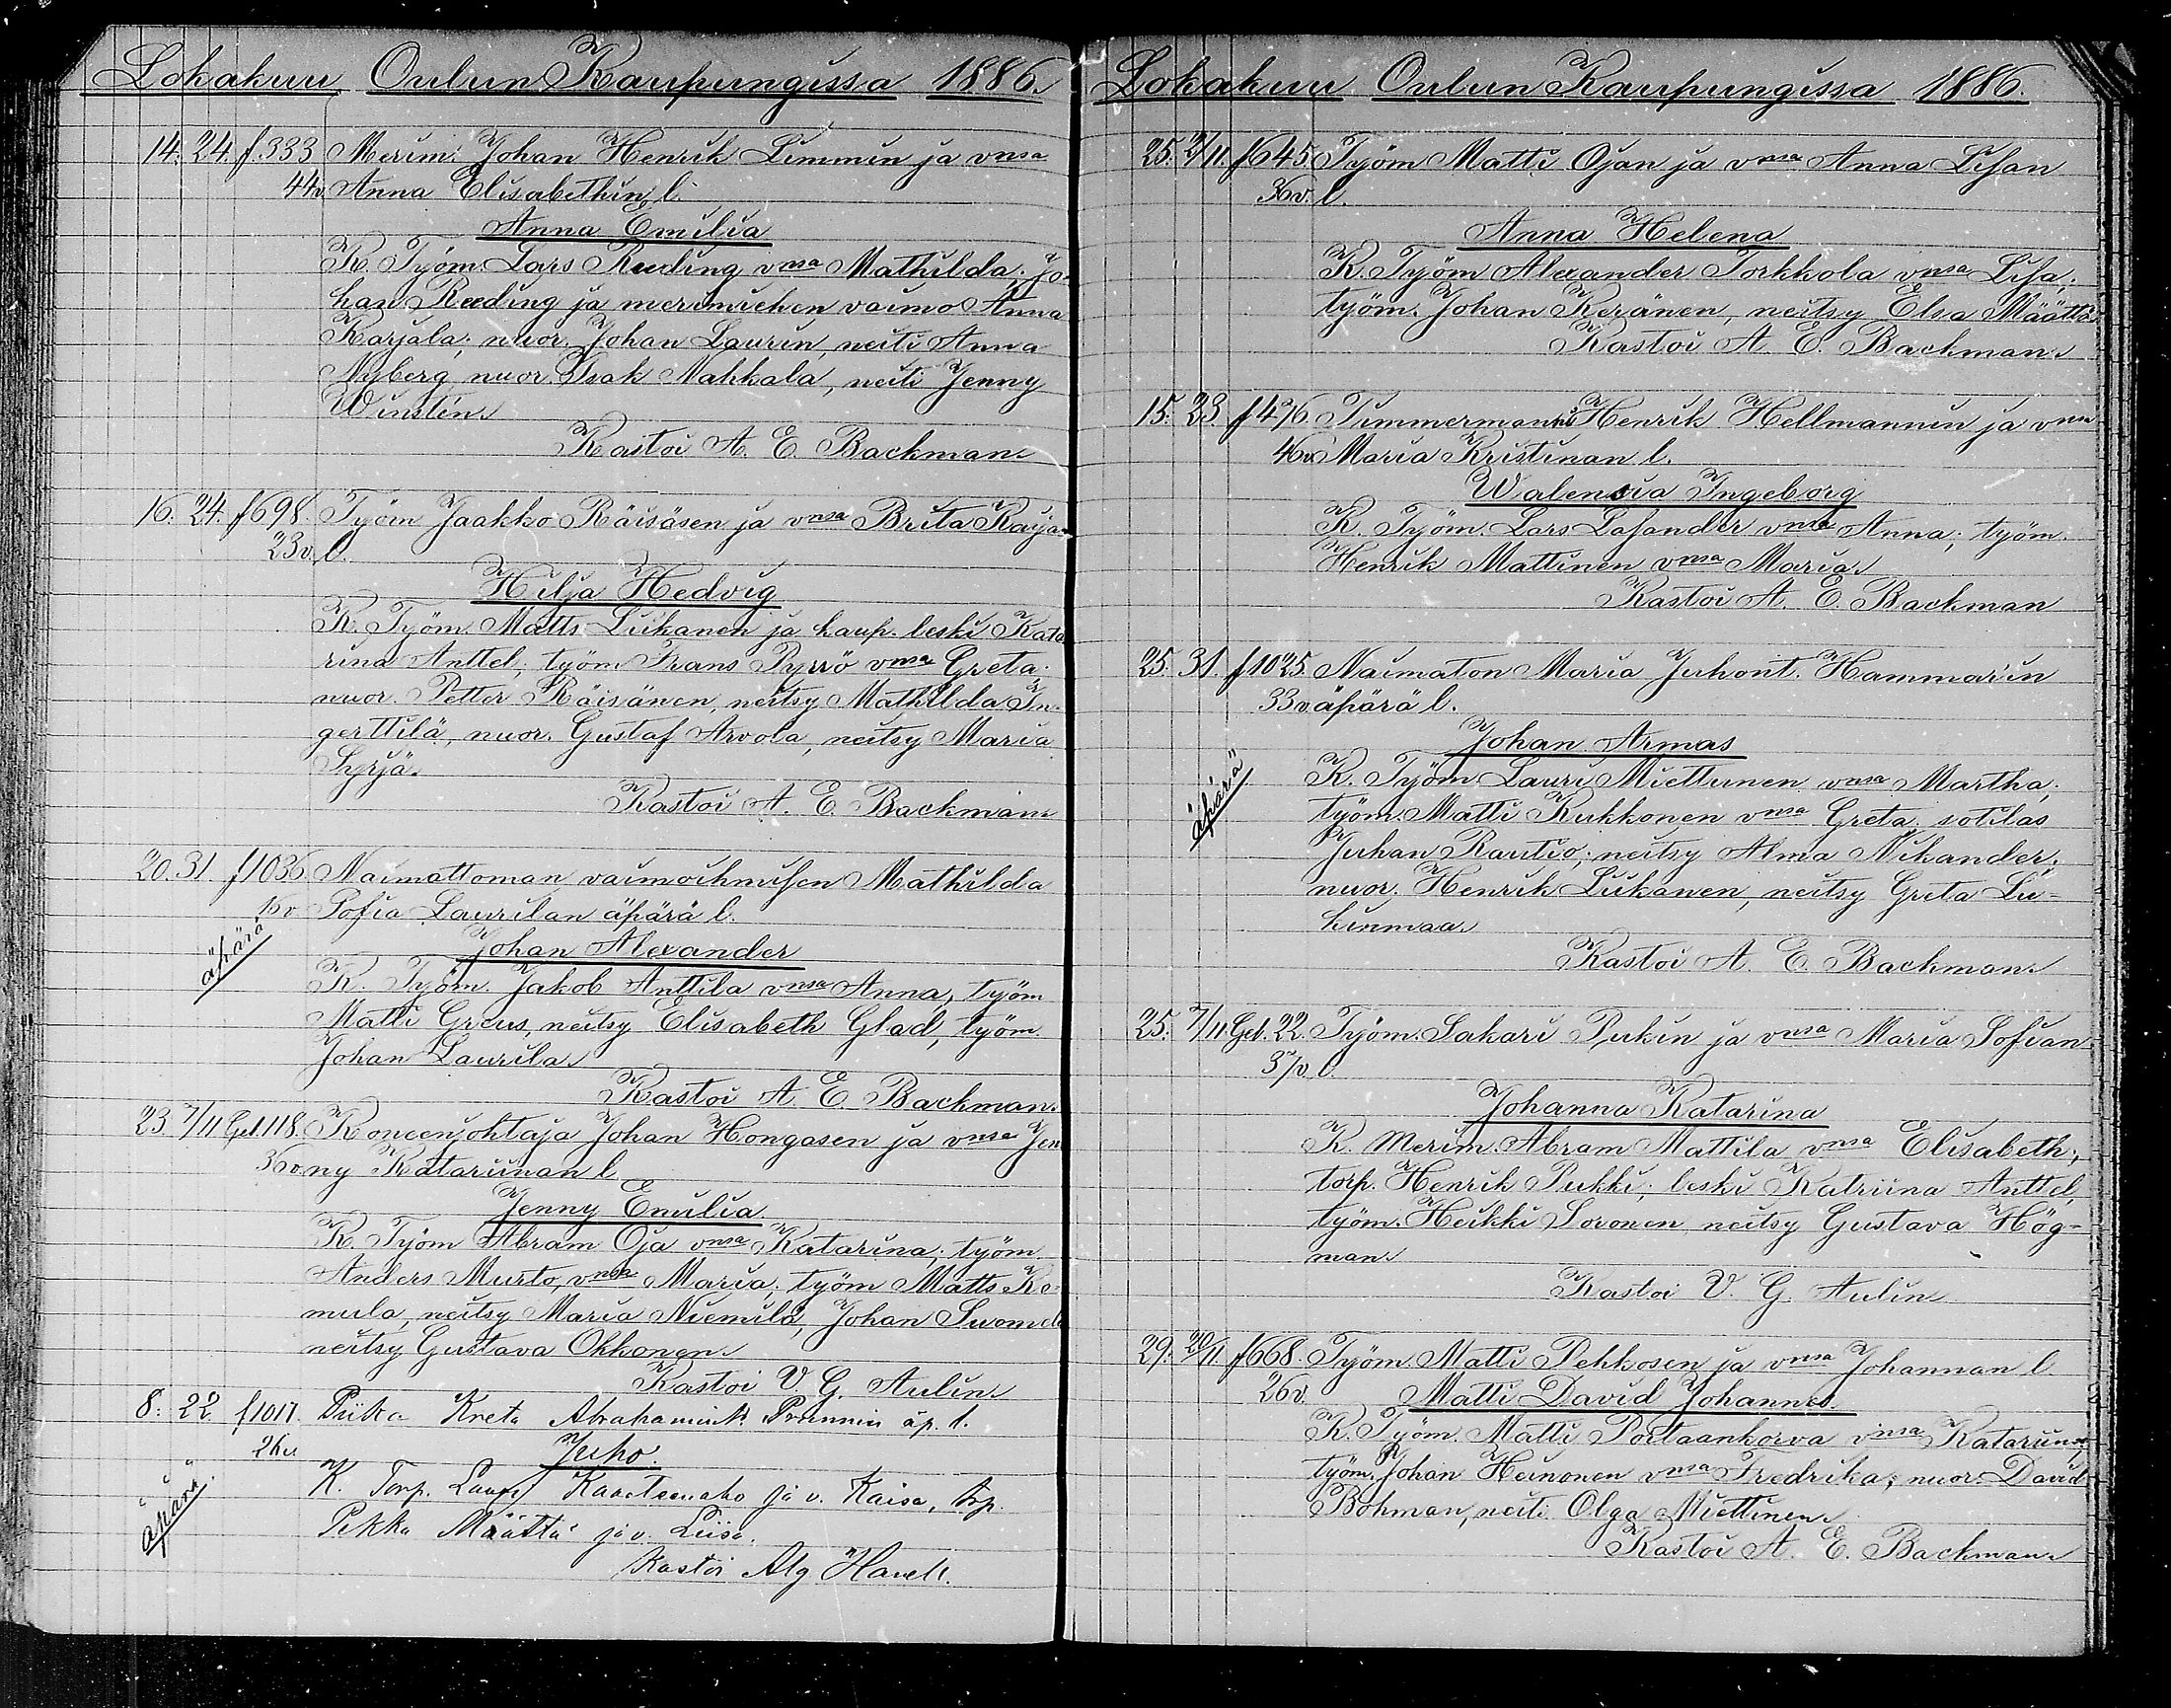 Lokakuu Oulun Kaupungissa 1886.
14. 24. f.333 Merim. Johan Henrik Limmin ja vnsa
44v. Anna Elisabethin l.
Anna Emilia
K. Työm. Lars Reeding vnsa Mathilda; Jo-
han Reeding ja merimiehen vaimo Anna
Karjala; nuor. Johan Laurin, neiti Anna
Nyberg, nuor. Isak Mahkala, neiti Jenny
Winstén.
Kastoi A. E. Backman.
16. 24. f698. Työm Jaakko Räisäsen ja vnsa Brita Kaijan
23v. l.
Hilja Hedvig
K. Työm. Matts Liikanen ja kaup. leski Kata
rina Anttel; työm Frans Pyrrö vnsa Greta;
nuor. Petter Räisänen, neitsy Mathilda In-
gerttilä, nuor. Gustaf Arvola, neitsy Maria
Syrjä.
Kastoi A. E. Backman.
20. 31. f1036. Naimattoman vaimoihmisen Mathilda
16v Sofia Laurilan äpärä l.
äpärä
Johan Alexander
K. Työm. Jakob Anttila vnsa Anna, työm
Matti Greus, neitsy Elisabeth Glad, työm.
Johan Laurila.
Kastoi A. E. Backman.
23. 7/11 Gel.118. Koneenjohtaja Johan Hongasen ja vnsa Jen
36v. ny Katariinan l
Jenny Emilia.
K. Työm Abram Oja vnsa Katarina; työm.
Anders Murto, vnsa Maria; työm Matts Ke-
mula, neitsy Maria Niemilä, Johan Suomela
neitsy Gustava Okkonen.
Kastoi V. G. Aulin.
8. 22. f1017. Piika Kreta Abrahamint. Prunnin äp. l.
26v
Juho.
äpärä.
K. Torp. Lauri ja v. Kaisa, torp.
Pekka Määttä ja v. Liisa.
Kastoi Alg Havell.
Lokakuu Oulun Kaupungissa 1886.
25. 2/11. f645. Työm Matti Ojan ja vnsa Anna Lisan
36v. l.
Anna Helena
K. Työm Alexander Torkkola vnsa Lisa;
työm. Johan Keränen, neitsy Elsa Määttä
Kastoi A. E. Backman.
15. 23. f476. Timmermanni Henrik Hellmannin ja vnsa
46v. Maria Kristinan l.
Walensia Ingeborg
K. Työm. Lars Lasander vnsa Anna; työm.
Henrik Mattinen vnsa Maria.
Kastoi A. E. Backman
25. 31. f1025. Naimaton Maria Juhont. Hammarin
33v äpärä l.
Johan Armas
äpärä
K. Työm Lauri Miettunen vnsa Martha;
työm. Matti Kukkonen vnsa Greta, sotilas
Juhan Rautio; neitsy Alma Nikander.
nuor. Henrik Liikanen, neitsy Greta Lii-
kinmaa.
Kastoi A. E. Backman.
25. 7/11 Gel. 22. Työm. Sakari Pukin ja vnsa Maria Sofian
37v. l.
Johanna Katarina
K. Merim. Abram Mattila vnsa Elisabeth;
torp. Henrik Pukki; leski Katriina Anttel,
työm. Heikki Soronen neitsy Gustava Hög-
man.
Kastoi V. G. Aulin
29. 20/11. f668. Työm. Matti Pehkosen ja vnsa Johannan l.
26v.
Matti David Johannes.
K. Työm. Matti Portaankorva vnsa Katariina,
työm. Johan Heinonen vnsa Fredrika; nuor. David
Bohman, neiti Olga Miettinen.
Kastoi A. E. Backman.